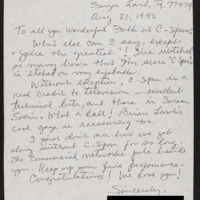 Sugar Land, Tx 77479
Aug 21, 1992
To all you wonderful folks at C-Span:
What else can I say, except
"you're the greatest"! I've watched
so many hours that I'm sure "C-Span"
is etched on my eyeballs.
Without exception, C-Span is a
real credit to television — excellent
technical lite, and there is Susan
Swain. What a ball! Brian Lamb's
cool gaze is reassuring too.
I just don't see how we got
along without C-Span for so long.
The commercial networks pale beside
you. Keep up your fine performance.
Congratulations! We love you!
Sincerely,